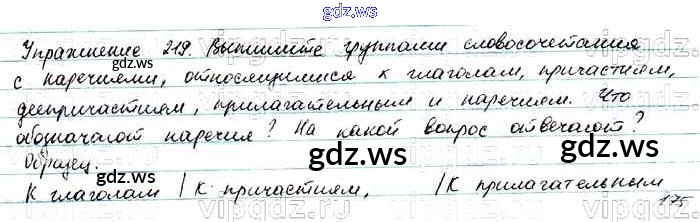 gdz.ws
Упражнение 219. Выпишите группами словосочетания
с наречиями, относящимися к глаголам, причастиям,
деепричастиям, прилагательным и наречиям. Что
обозначают наречия? На какой вопрос отвечают?
Образец.
К глаголам | К причастиям, | К прилагательным
gdz.ws gdz.ws gdz.ws
175